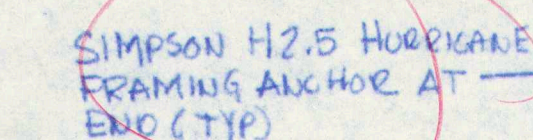 SIMPSON H2.5 HURRICANE
FRAMING ANCHOR AT
END (TYP)